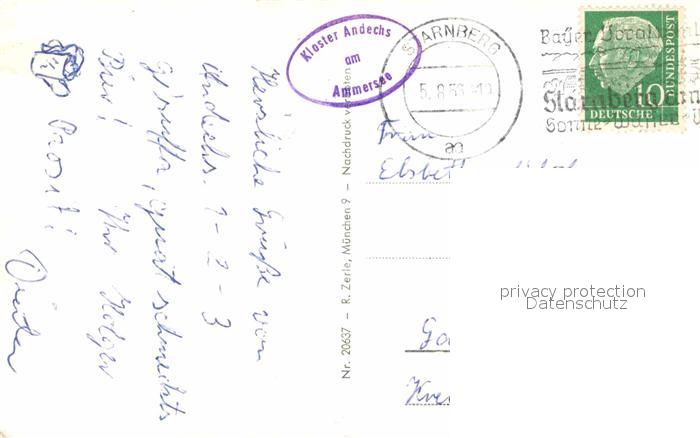 Kloster Andechs
am
Ammersee
STARNBERG
5.8.56-10
aa
Bayer
Starnberg am
DEUTSCHE
BUNDESPOST
10
Herzliche Grüße von
Andechs. 1-2-3
g'suffa,
Bier! Ihr Holger
Prosit!
Dieter
½
Nr. 20637 – R. Zerle, München 9 – Nachdruck verboten
Frau
Elsbeth
Ga
Kre
privacy protection
Datenschutz